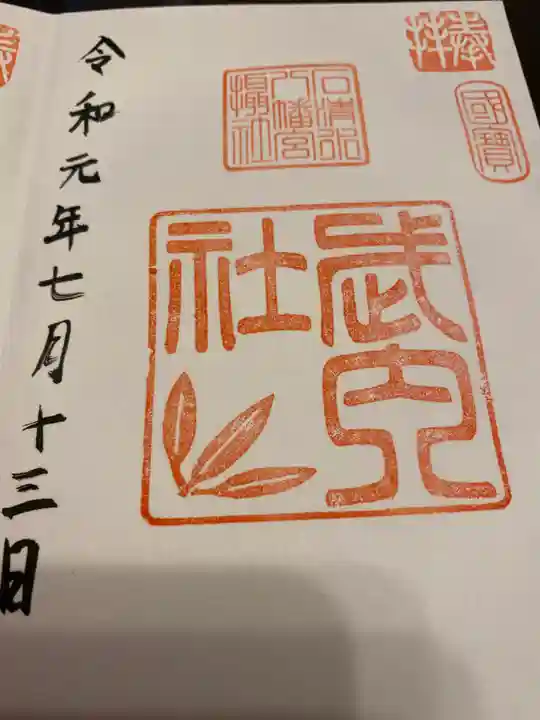 奉拝
國寶
石清水
八幡宮
攝社
武内
社
令和元年七月十三日